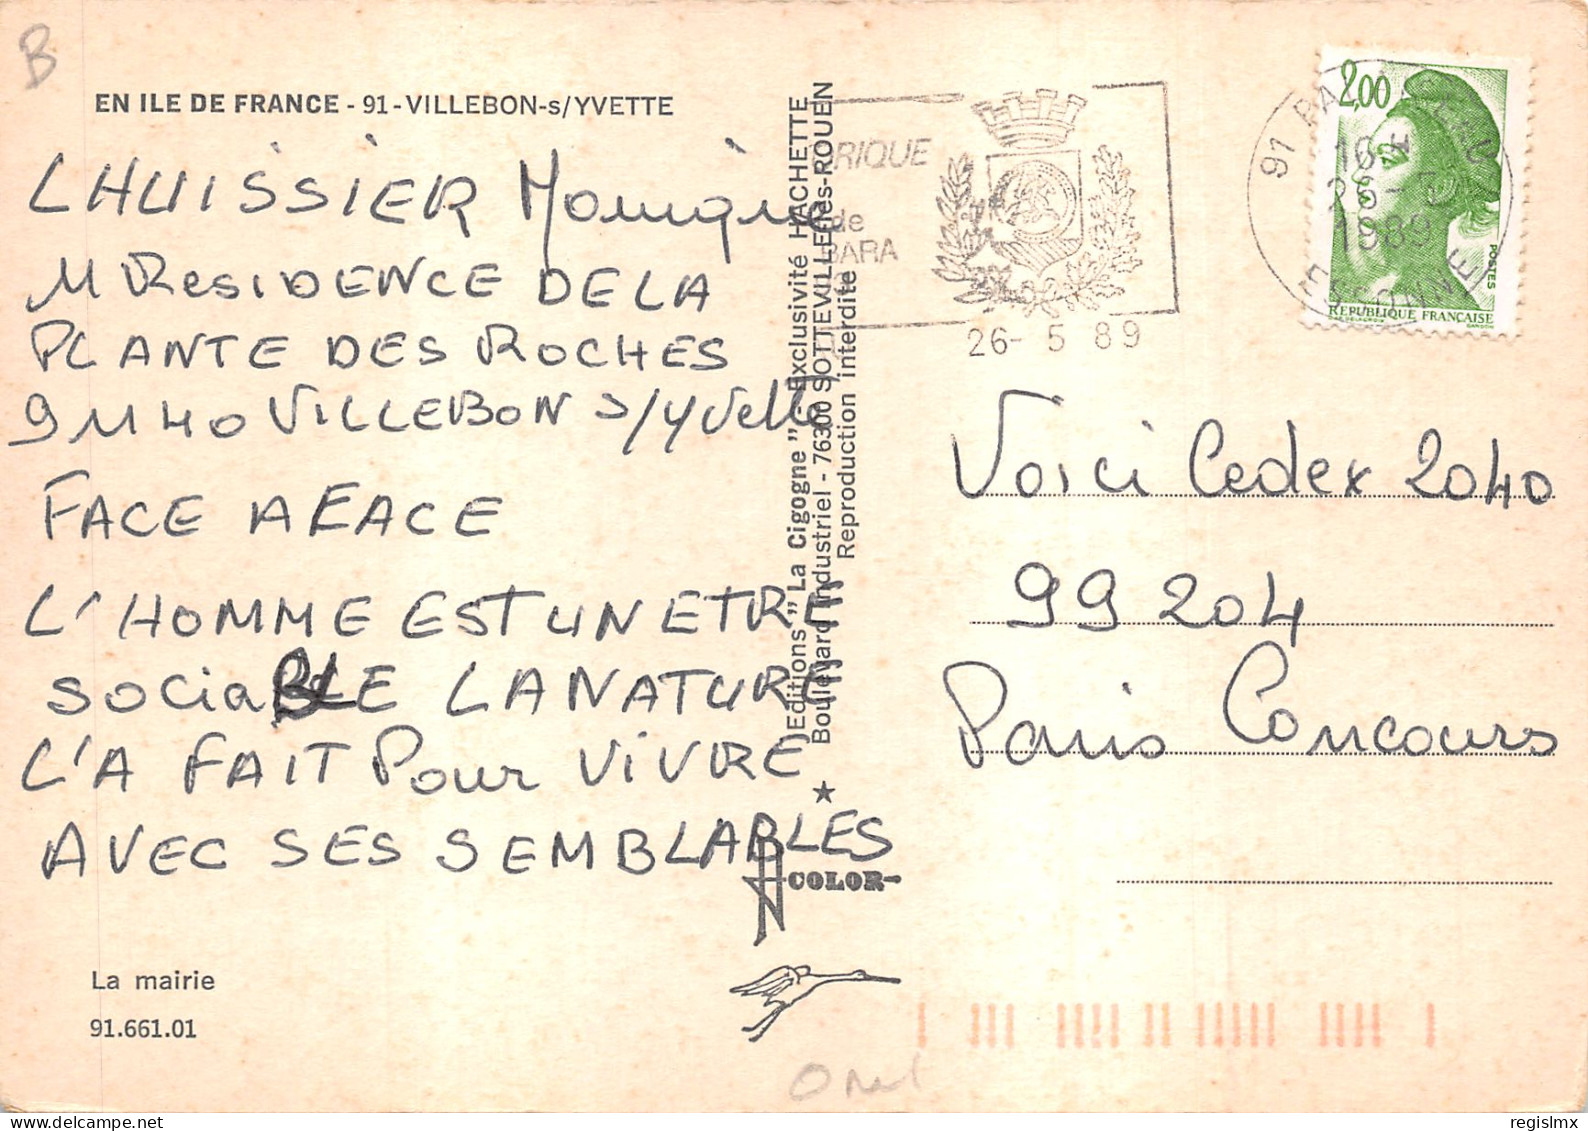 B
EN ILE DE FRANCE - 91 - VILLEBON-s/YVETTE
LHUISSIER Monique
11 RESIDENCE DE LA
PLANTE DES ROCHES
91140 VILLEBON s/yvette
FACE A FACE
L'HOMME EST UN ETRE
SOCIABLE LA NATURE
L'A FAIT Pour VIVRE
AVEC SES SEMBLABLES
La mairie
91.661.01
Editions "La Cigogne" - Exclusivité HACHETTE
Boulevard Industriel - 76300 SOTTEVILLE-lès-ROUEN
Reproduction interdite
COLOR
RIQUE
de
BARA
26- 5 89
91 PALAISEAU
16 H
26-5
1989
ESSONNE
2,00
POSTES
REPUBLIQUE FRANÇAISE
Voici Cedex 2040
99 204
Paris Concours
regislmx